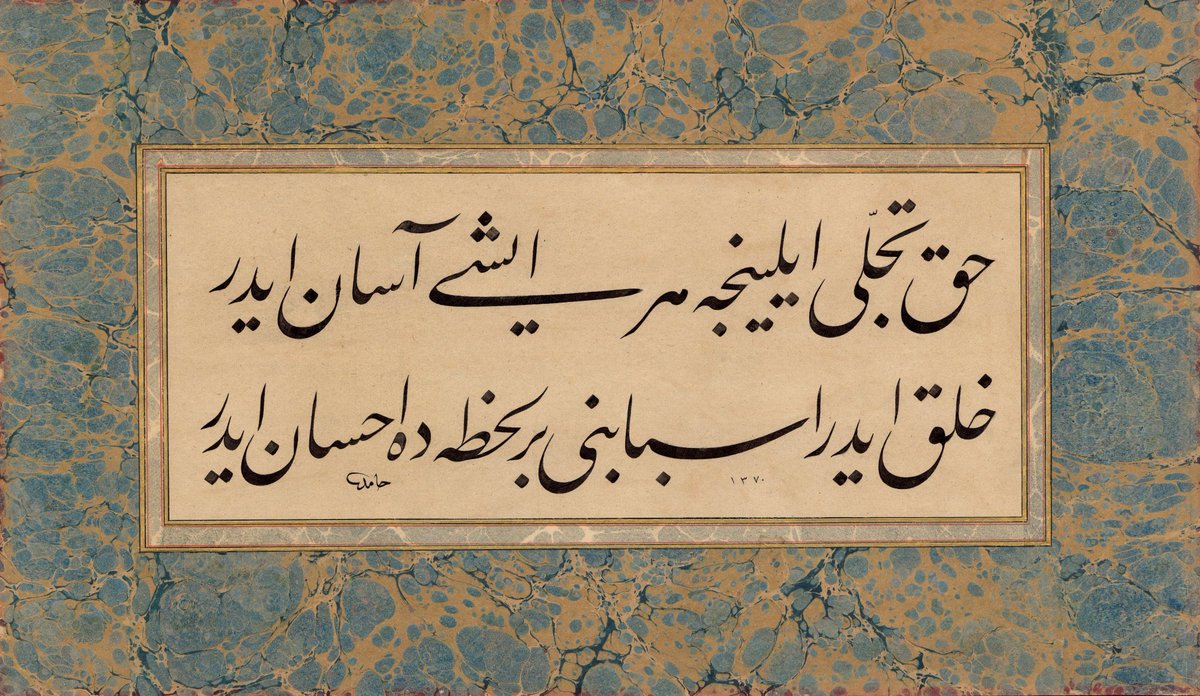 حق تجلّی ایلینجه هر ایشی آسان ایدر
خلق ایدر اسبابنی بر لحظه ده احسان ایدر
١٣٧٠
حامد